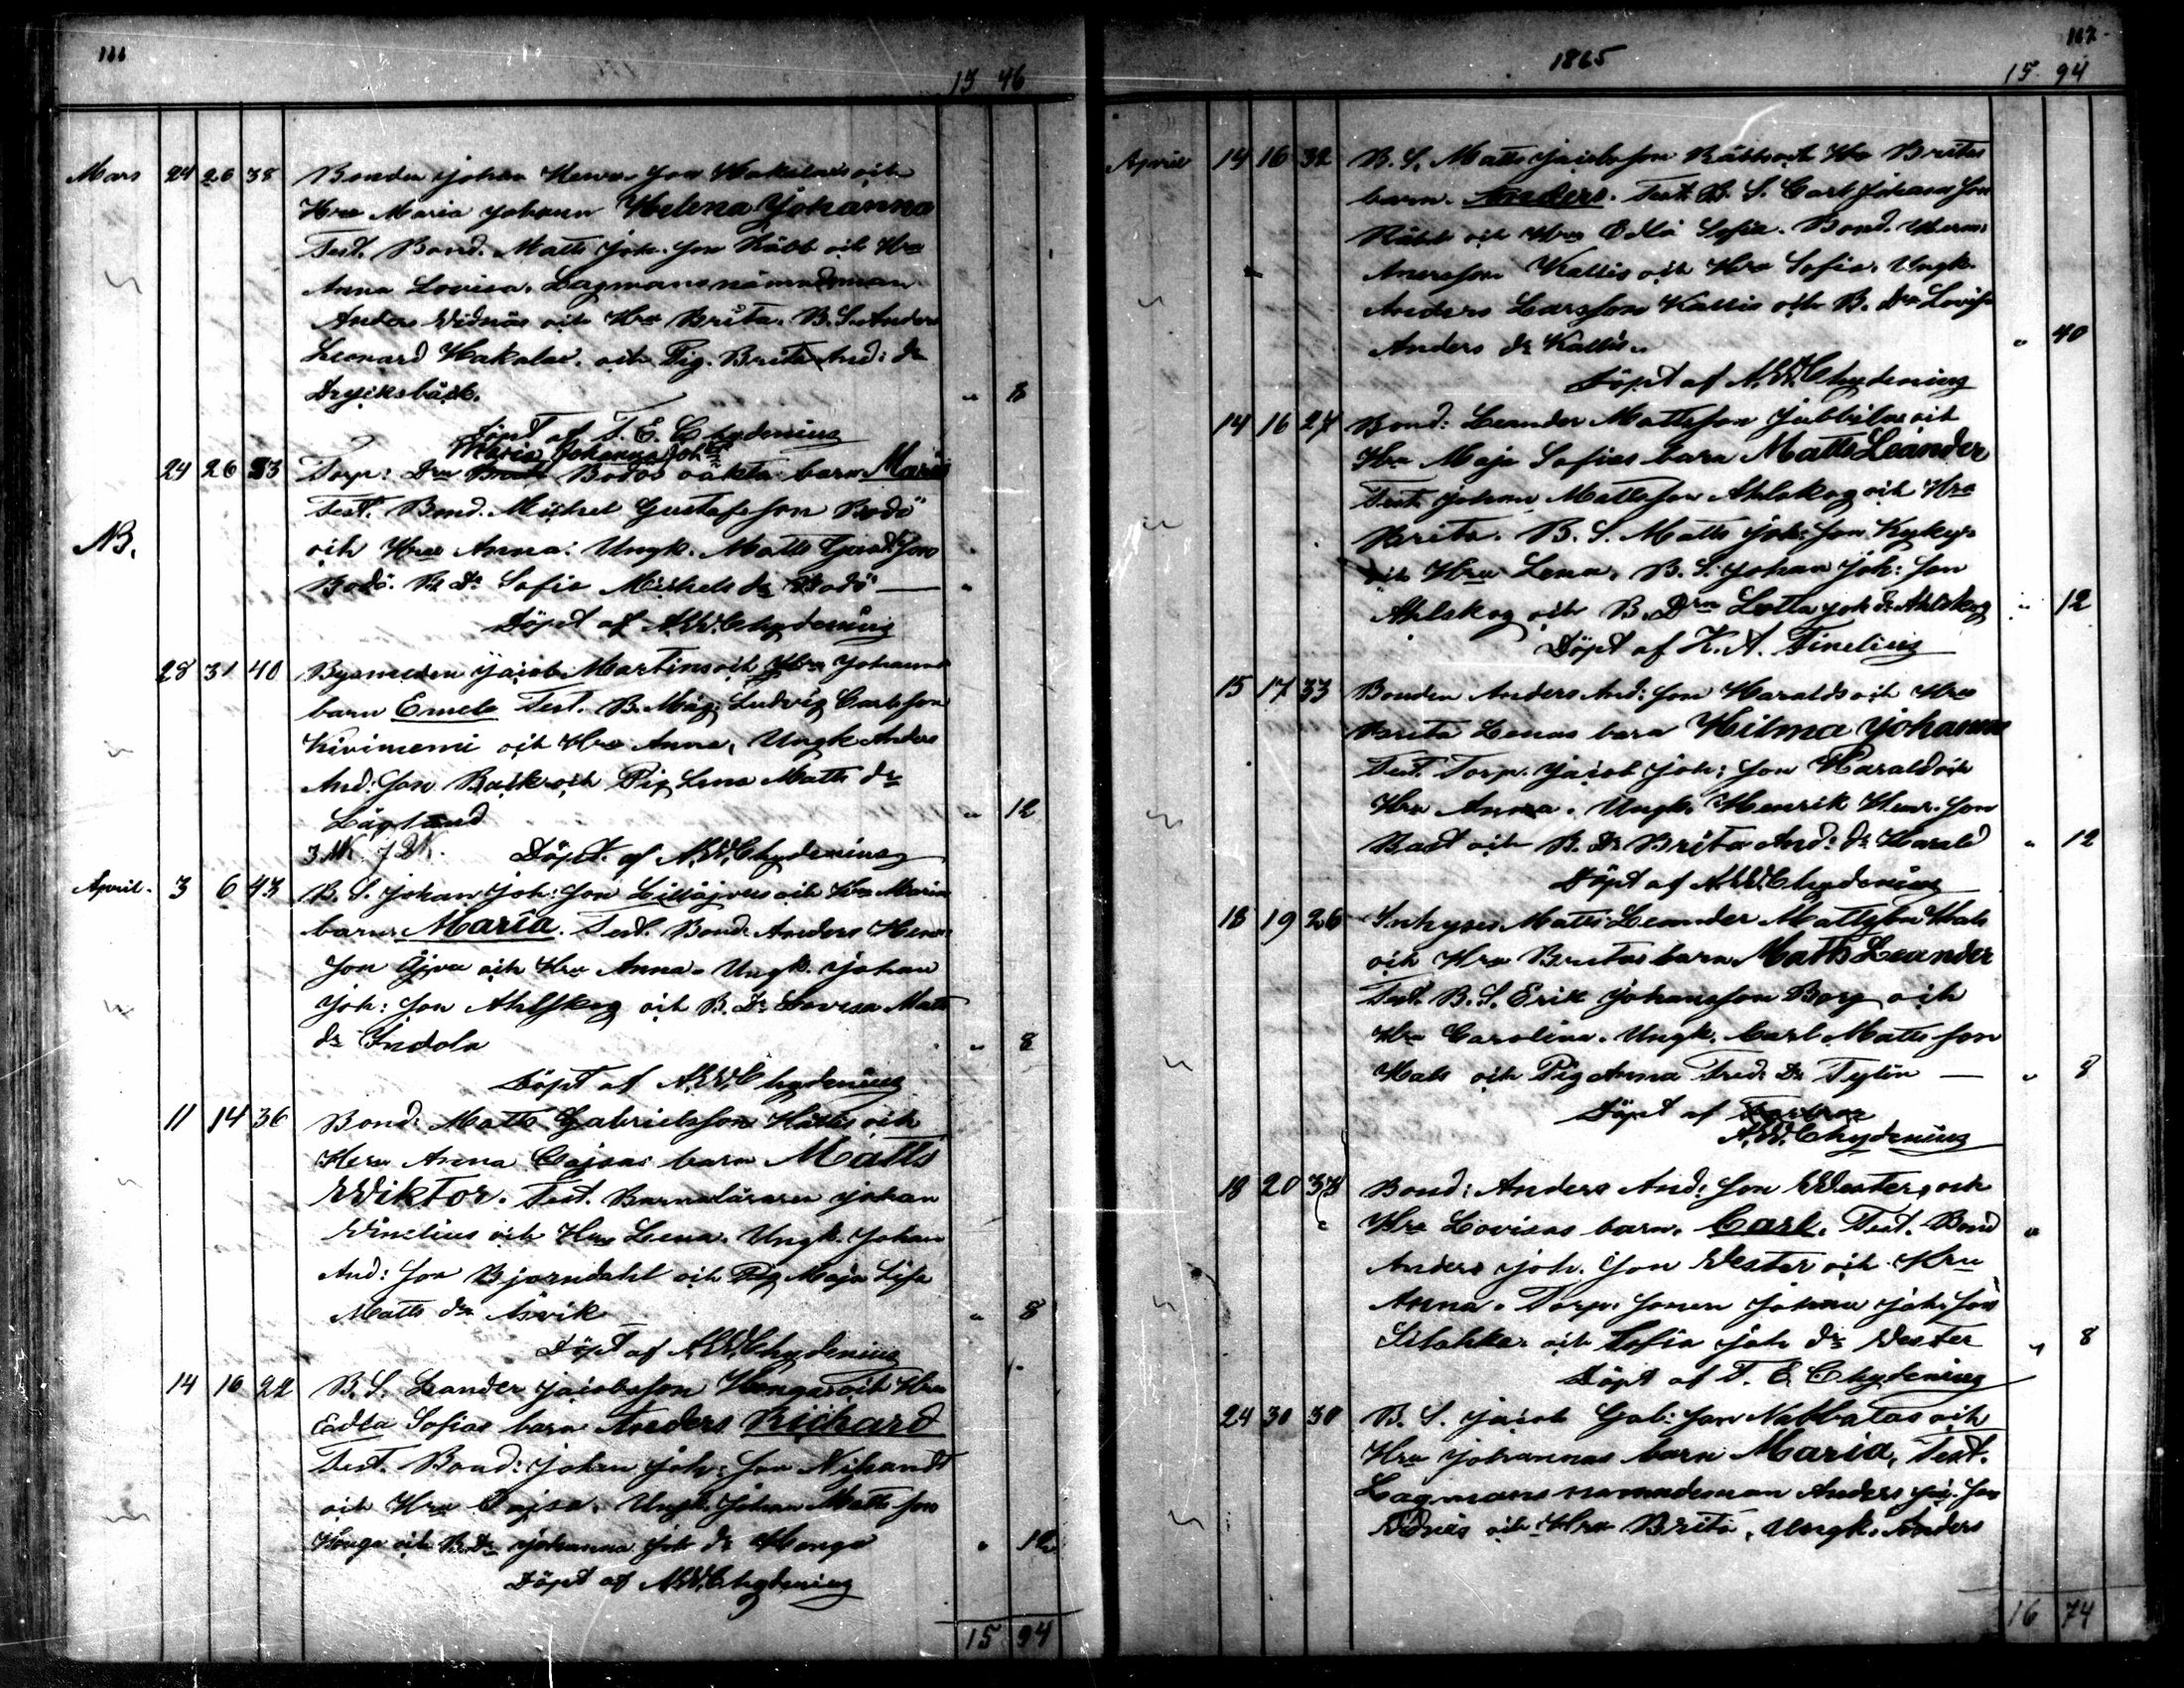 111
15 46
Mars 24 26 38 Bonden Johan Henr. son Hakalas och
Hru Maria Johann Helena Johanna
Test. Bond. Matts Joh. son Räbb och Hru
Anna Lovisa. Lagmansnämndeman
Anders Widnäs och Hru Brita. B. S. Anders
Leonard Hakala. och Pig. Brita And: dr
Drycksbäck. " 8
Döpt af F. E. Chydenius
Maria Johanna Joh dr
24 26 33 Torp: Dra Bodös oäkta barn Maria
Test. Bond. Michel Gustafsson Bodö
och Hru Anna. Ungk. Matts Gust. son
NB.
Bodö. B. Dr Sofia Michels dr Bodö — "
Döpt af A. W. Chydenius
28 31 40 Bysmeden Jacob Martins och Hru Johanna
barn Emele Test. B. Måg. Ludvig Carlsson
Kiviniemi och Hru Anna, Ungk Anders
And: son Back och Pig Lena Matts dr
Låglund " 12
Döpt af A. W. Chydenius
April. 3 6 43 B. S. Johan Joh: son Lillåjvas och Hru Marias
barn Maria. Test. Bond. Anders Henr:
son Åjva och Hru Anna. Ungk. Johan
Joh: son Ahlskog och B. Dr Lovisa Matts
dr Indola " 8
Döpt af A. W. Chydenius
11 14 36 Bond: Matts Gabrielsson Källis och
Hru Anna Cajsas barn Matts
Wiktor. Test. Barnaläraren Johan
Winelius och Hru Lena. Ungk. Johan
And: son Bjorndahl och Pig Maja Lisa
Matts dr Åsvik " 8
Döpt af A. W. Chydenius
14 16 22 B. S. Leander Jacobsson Hongas och Hru
Edla Sofias barn Anders Richard
Test. Bond: Johan Joh: son Wistrand
och Hru Cajsa. Ungk. Johan Matts son
Honga och B. Dr Johanna Joh dr Honga " 12
Döpt af A. W. Chydenius
15 94
1865
112
15 94
April 14 16 32 B. S. Matts Jacobsson Räbbs och Hru Britas
barn. Anders. Test. B. S. Carl Johansson
Räbb och Hru Edla Sofia. Bond. Herm:
Anersson Kallis och Hru Sofia. Ungk.
Anders Larsson Kallis och B. Dr Lovisa
Anders dr Kallis. " 40
Döpt af A. W. Chydenius
14 16 27 Bond: Leander Mattsson Jubbilas och
Hru Maja Sofias barn Matts Leander
Test. Johan Mattsson Ahlskog och Hru
Brita. B. S. Matts Joh: son Kyky
och Hru Lena. B. S. Johan Joh: son
Ahlskog och B. Dra Lotta Joh dr Ahlskog " 12
Döpt af K. A. Finelius
15 17 33 Bonden Anders And: son Haralds och Hru
Brita Lenas barn Hilma Johanna
Test. Torp. Jacob Joh: son Harald och
Hru Anna. Ungk. Henrik Henr. son
Bast och B. Dr Brita And: dr Harald " 12
Döpt af A. W. Chydenius
18 19 26 Inhyses Matts Leander Mattsson Hals
och Hru Britas barn Matts Leander
Test. B. S. Erik Johansson Borg och
Hru Carolina. Ungk. Carl Matts son
Hals och Pig Anna Fred: Dr Tylin — " 8
Döpt af
A. W. Chydenius
18 20 33 Bond: Anders And: son Westers och
Hru Lovisas barn. Carl. Test. Bond "
Anders Joh. son Wester och Hru
Anna. Torp. sonen Johan Joh: son
och Sofia Joh dr Wester " 8
Döpt af F. E. Chydenius
24 30 30 B. S. Jacob Gab: son Nabbalas och
Hru Johannas barn Maria, Test.
Lagmans nämndeman Anders Jac. son
Widnäs och Hru Brita, Ungk. Anders
16 74